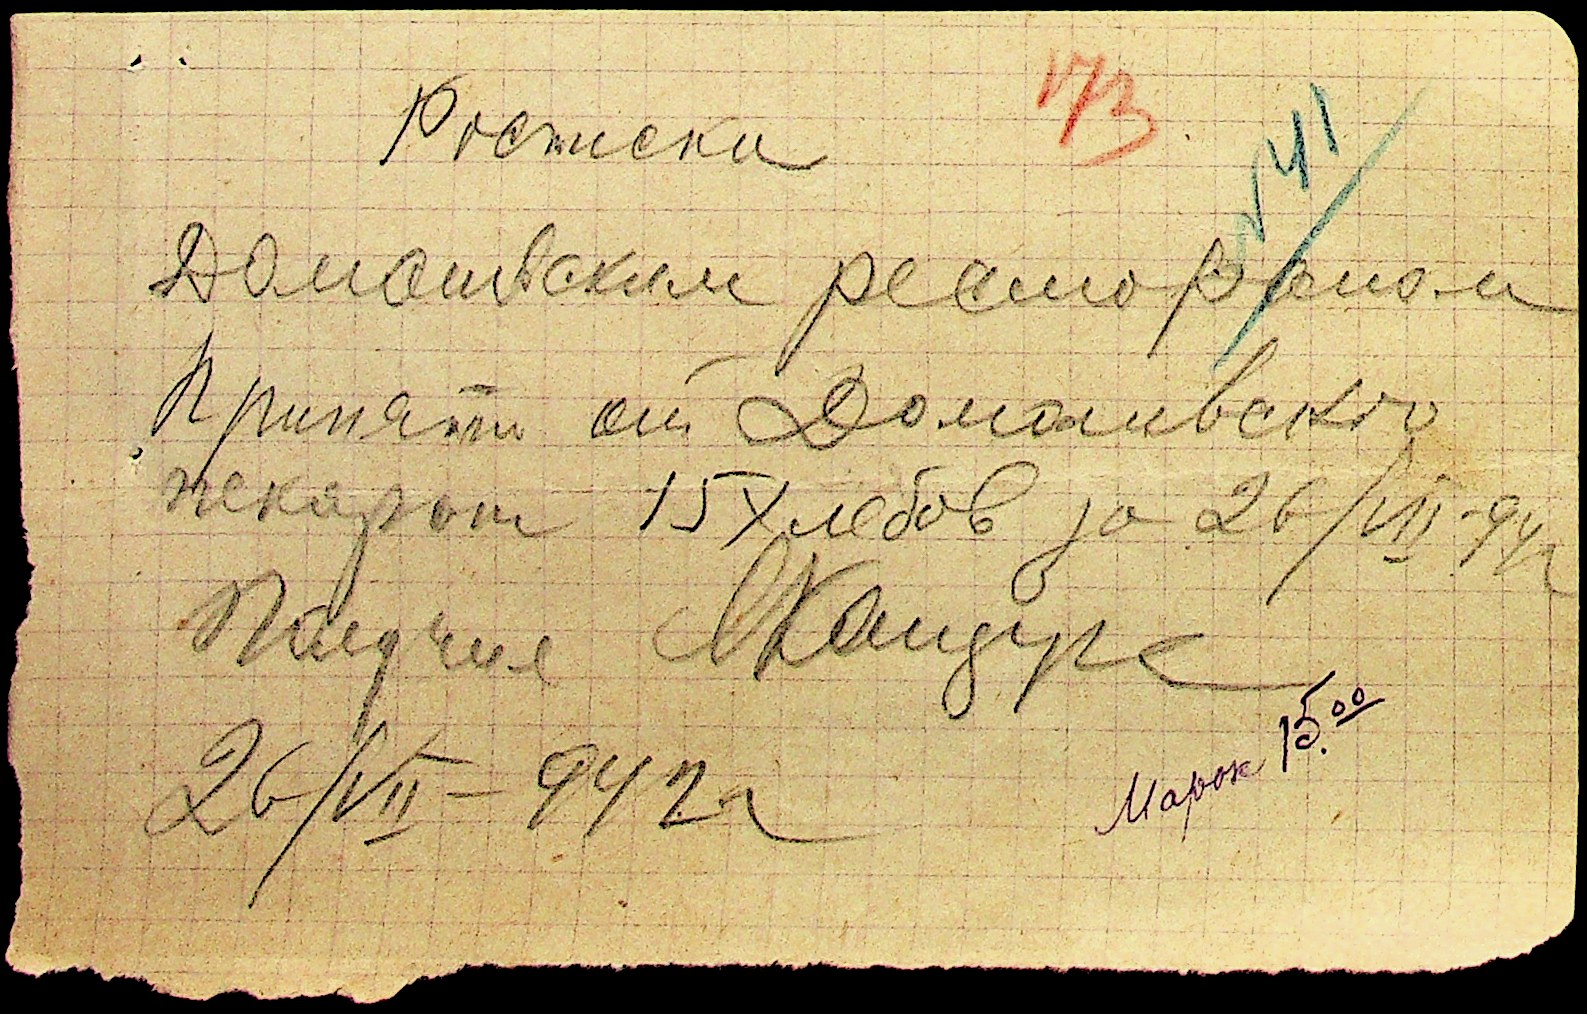 173
№ 41
Росписка
Доманівским рестораном
Принято от Доманивского
пекарни 15 хлебов за 26/VII-94г
Получил
26/VII-94 г
Марок 15.00